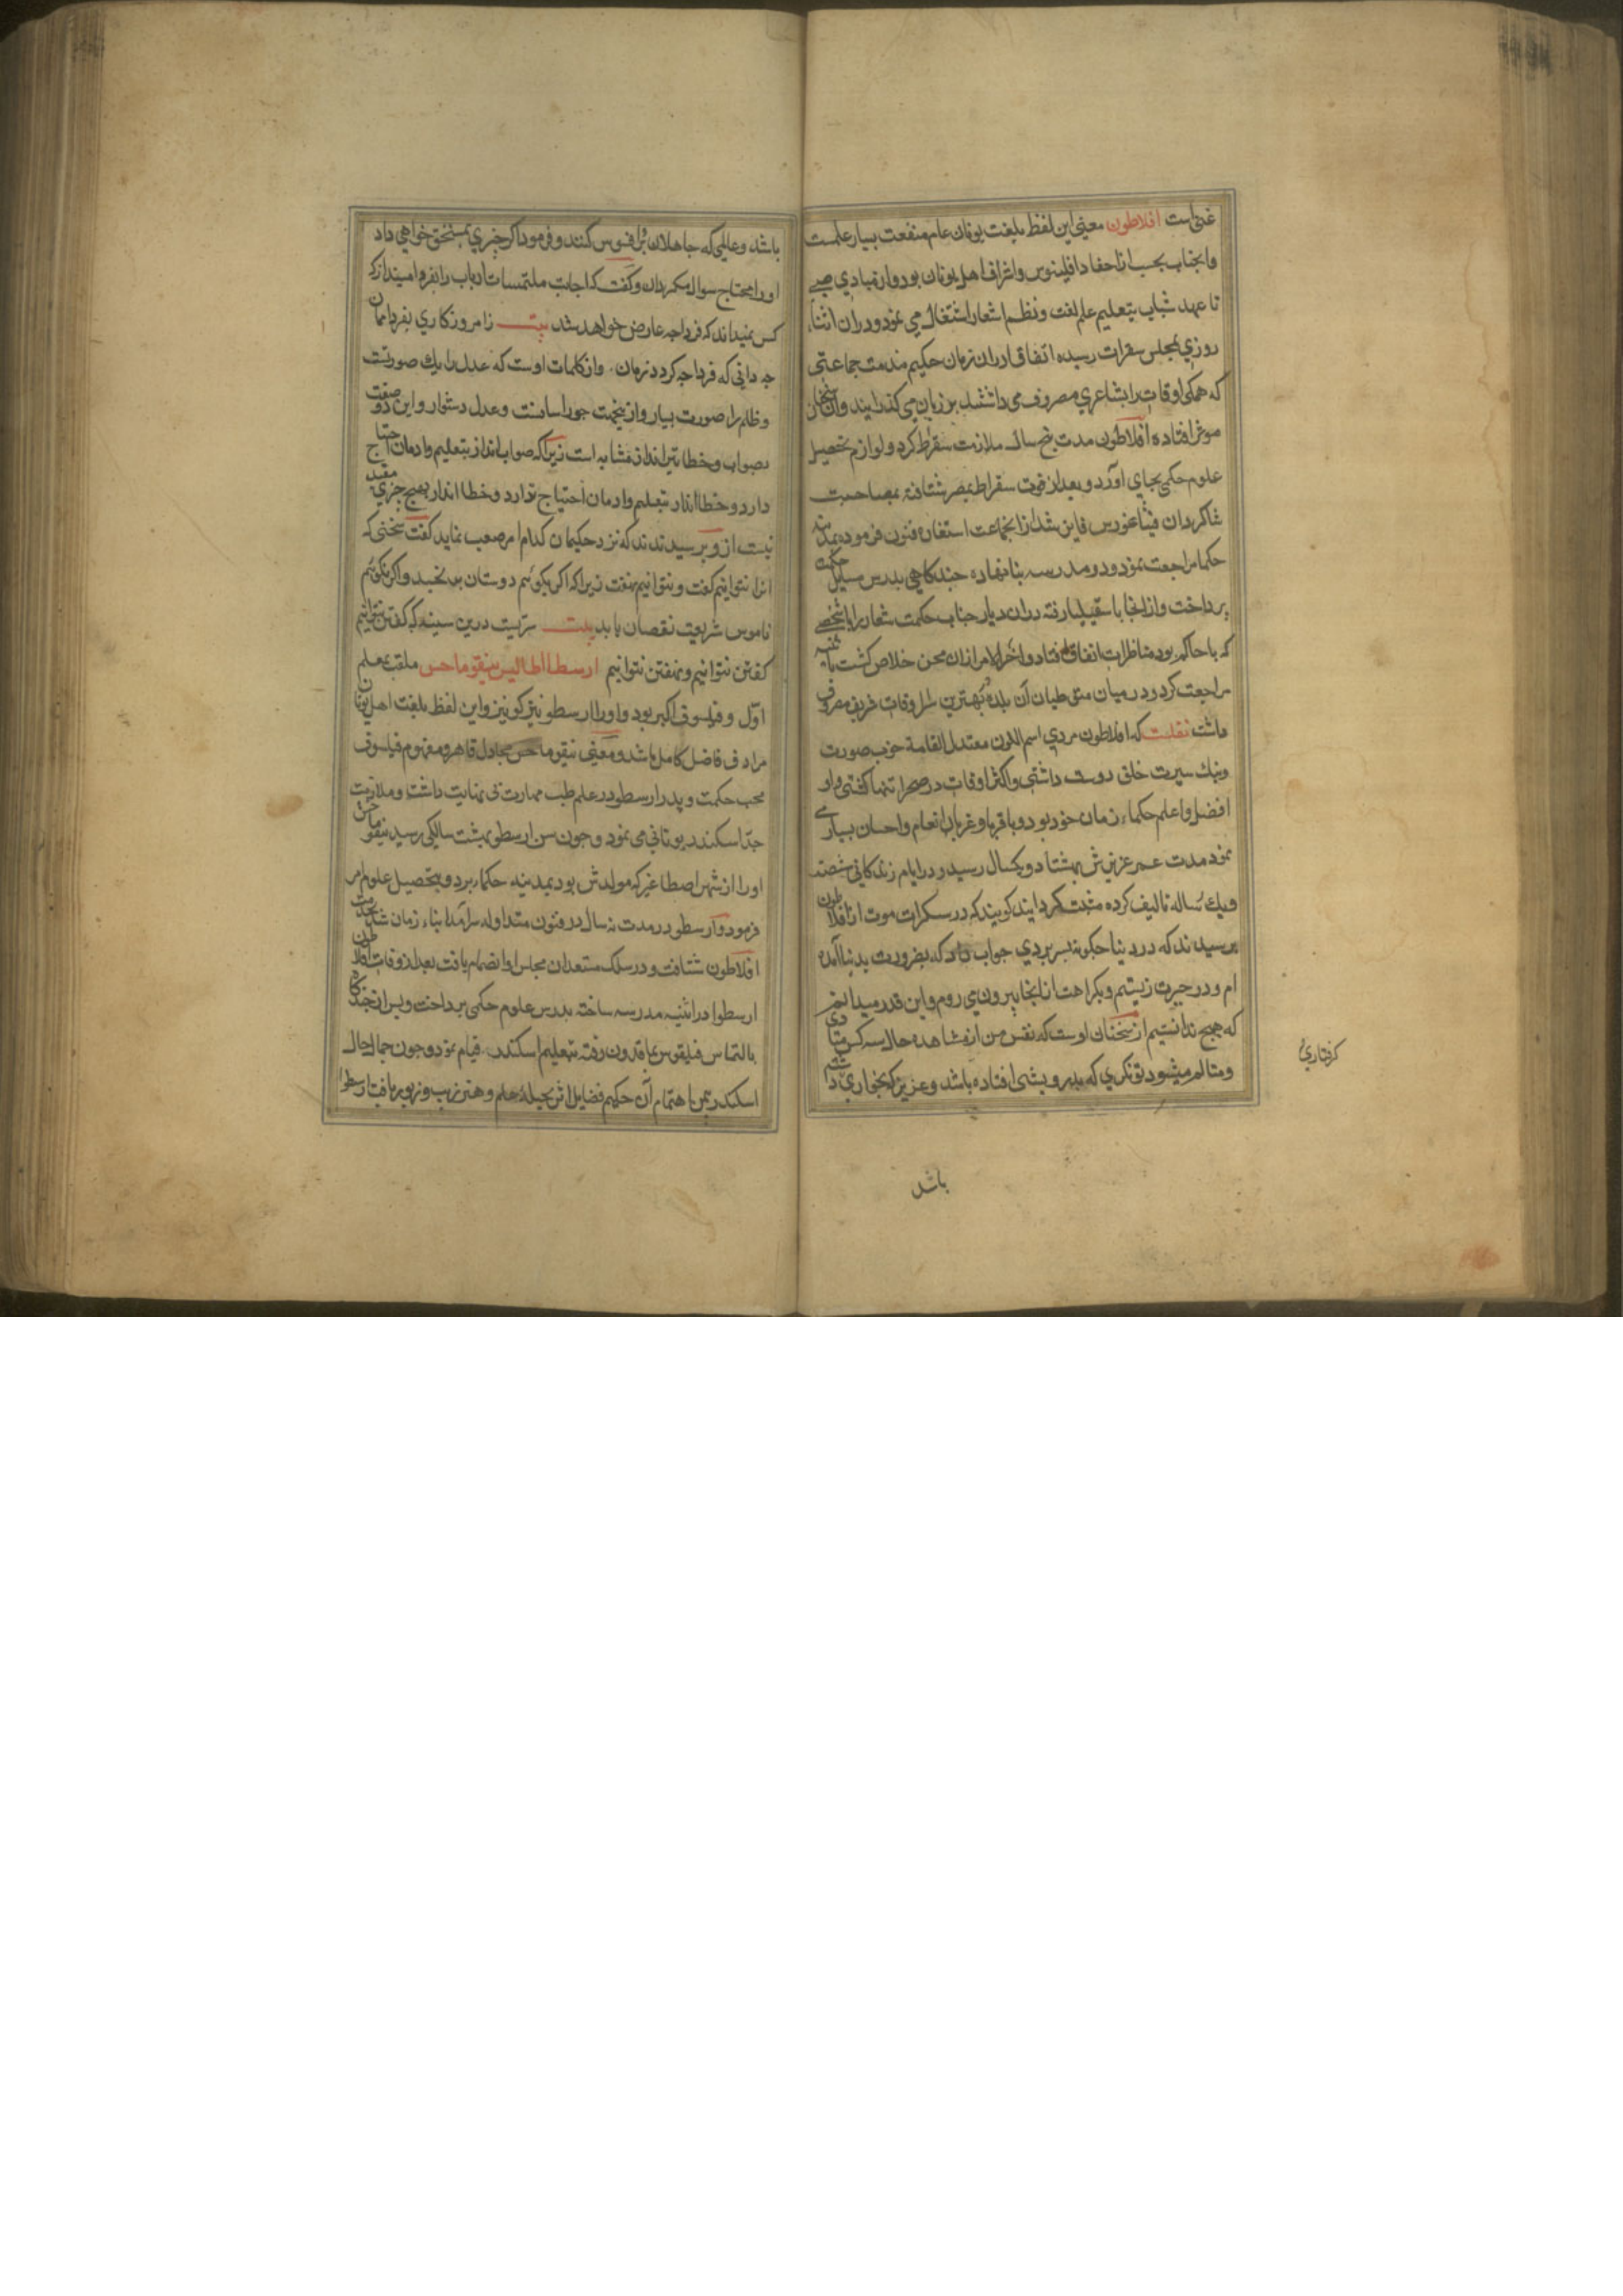 غنی است افلاطون معنی این لفظ بلغت یونان عام منفعت بسیار علمست
وانجناب بحسب از احفاد اقلینوس واشراف اهل یونان بود واز مبادی صبی
تا عهد شباب بتعلیم علم لغت ونظم اشعار اشتغال می نمود ودران اثناء
روزی بمجلس سقراط رسیده اتفاقا دران زمان حکیم مذمت جماعتی
که همکی اوقات را بشاعری مصروف می داشتند بر زبان می کذرانید وان سخنان
موثر افتاده افلاطون مدت پنج سال ملازمت سقراط کرد ولوازم تحصیل
علوم حکمی بجای آورد وبعد از فوت سقراط بمصر شتافته بمصاحبت
شاکردان فیثاغورس فایز شد از انجماعت استفاده فنون فرموده بمدینه
حکما مراجعت نمود ودو مدرسه بنا نهاده چند کاهی بدرس مسایل حکمت
پرداخت وازانجا باسقیلیا رفته دران دیار جناب حکمت شعار را باشخصی
که با حاکم بود مناظرات اتفاق افتاد واخر الامر ازان محن خلاص کشت
مراجعت کرد ودر میان متوطنان آن بلده بهترین اوقات شریف مصروف
داشت نقلست که افلاطون مردی اسم اللون معتدل القامة خوب صورت
ونیک سیرت خلق دوست داشتی واکثر اوقات در صحرا تنها کشتی واو
افضل واعلم حکماء زمان خود بود وباقربا وغربا انعام واحسان بسیار می
نمود مدت عمر عزیزش بهشتاد ویکسال رسید ودر ایام زندکانی شصت
ویک رساله تالیف کرده مثبت کردانید کویند که در سکرات موت از افلاطون
پرسیدند که در دنیا چکونه بسر بردی جواب داد که بضرورت بدنیا آمده
ام ودر حیرت زیستیم وبکراهت ازانجا بیرون می روم واین قدر میدانم
که هیچ ندانستیم از سخنان اوست که نفس من از مشاهده حال سه کس متاذی
ومتالم میشود تونکری که بدرویشی افتاده باشد وعزیز که بخواری
کرفتاری
باشد
باشد وعالمی که جاهلان بر وی افسوس کنند وفرمود اکر چیزی بمستحق خواهی داد
اورا محتاج سوال مکردان وکفت که اجابت ملتمسات ارباب را بفردا مینداز که
کس نمیداند که فردا چه عارض خواهد شد بیت ز امروز کاری بفردا ممان
چه دانی که فردا چه کردد زمان واز کلمات اوست که عدل را یک صورتست
وظلم را صورت بسیار وازینجهت جور اسانست وعدل دشوار واین دو صفت
بصواب وخطا تیر انداز مشابه است زیرا که صواب انداز بتعلیم وادمان احتیاج
دارد وخطا انداز بتعلیم وادمان احتیاج ندارد وخطا انداز بهیچ چیزی مقید
نیست از و پرسیدند که نزد حکیمان کدام امر صعب نماید کفت سخنی که
انرا نتوانیم کفت ونتوانیم نهفت زیرا که اکر بکوئیم دوستان برنجند واکر نکوئیم
ناموس شریعت نقصان یابد بیت سریست درین سینه که کفتن نتوانیم
کفتن نتوانیم ونهفتن نتوانیم ارسطاطالیس نیقوماحس ملقب بمعلم
اوّل وفیلسوف اکبر بود واورا ارسطو نیز کویند واین لفظ بلغت اهل یونان
مرادف فاضل کامل باشد ومعنی نیقوماحس مجادل قاهر ومفهوم فیلسوف
محب حکمت وپدر ارسطو در علم طب مهارت بی نهایت داشت وملازمت
جدّ اسکندر یونانی می نمود وچون سن ارسطو بهشت سالکی رسید نیقوماحس
اورا از شهر اصطاغیر که مولدش بود بمدینه حکما برد وبتحصیل علوم امر
فرمود وارسطو در مدت نه سال در فنون متداوله سرآمد ابناء زمان شد بخدمت
افلاطون شتافت ودر سلک مستعدان مجلس او انضمام یافت بعد از وفات افلاطون
ارسطو در اثنیه مدرسه ساخته بدرس علوم حکمی پرداخت وپس از چند کاه
بالتماس فیلقوس بماقدون رفته بتعلیم اسکندر قیام نمود وچون جمال حال
اسکندر بیمن اهتمام آن حکیم فضایل اثر بحیله علم وهنر زیب وزیور یافت ارسطو